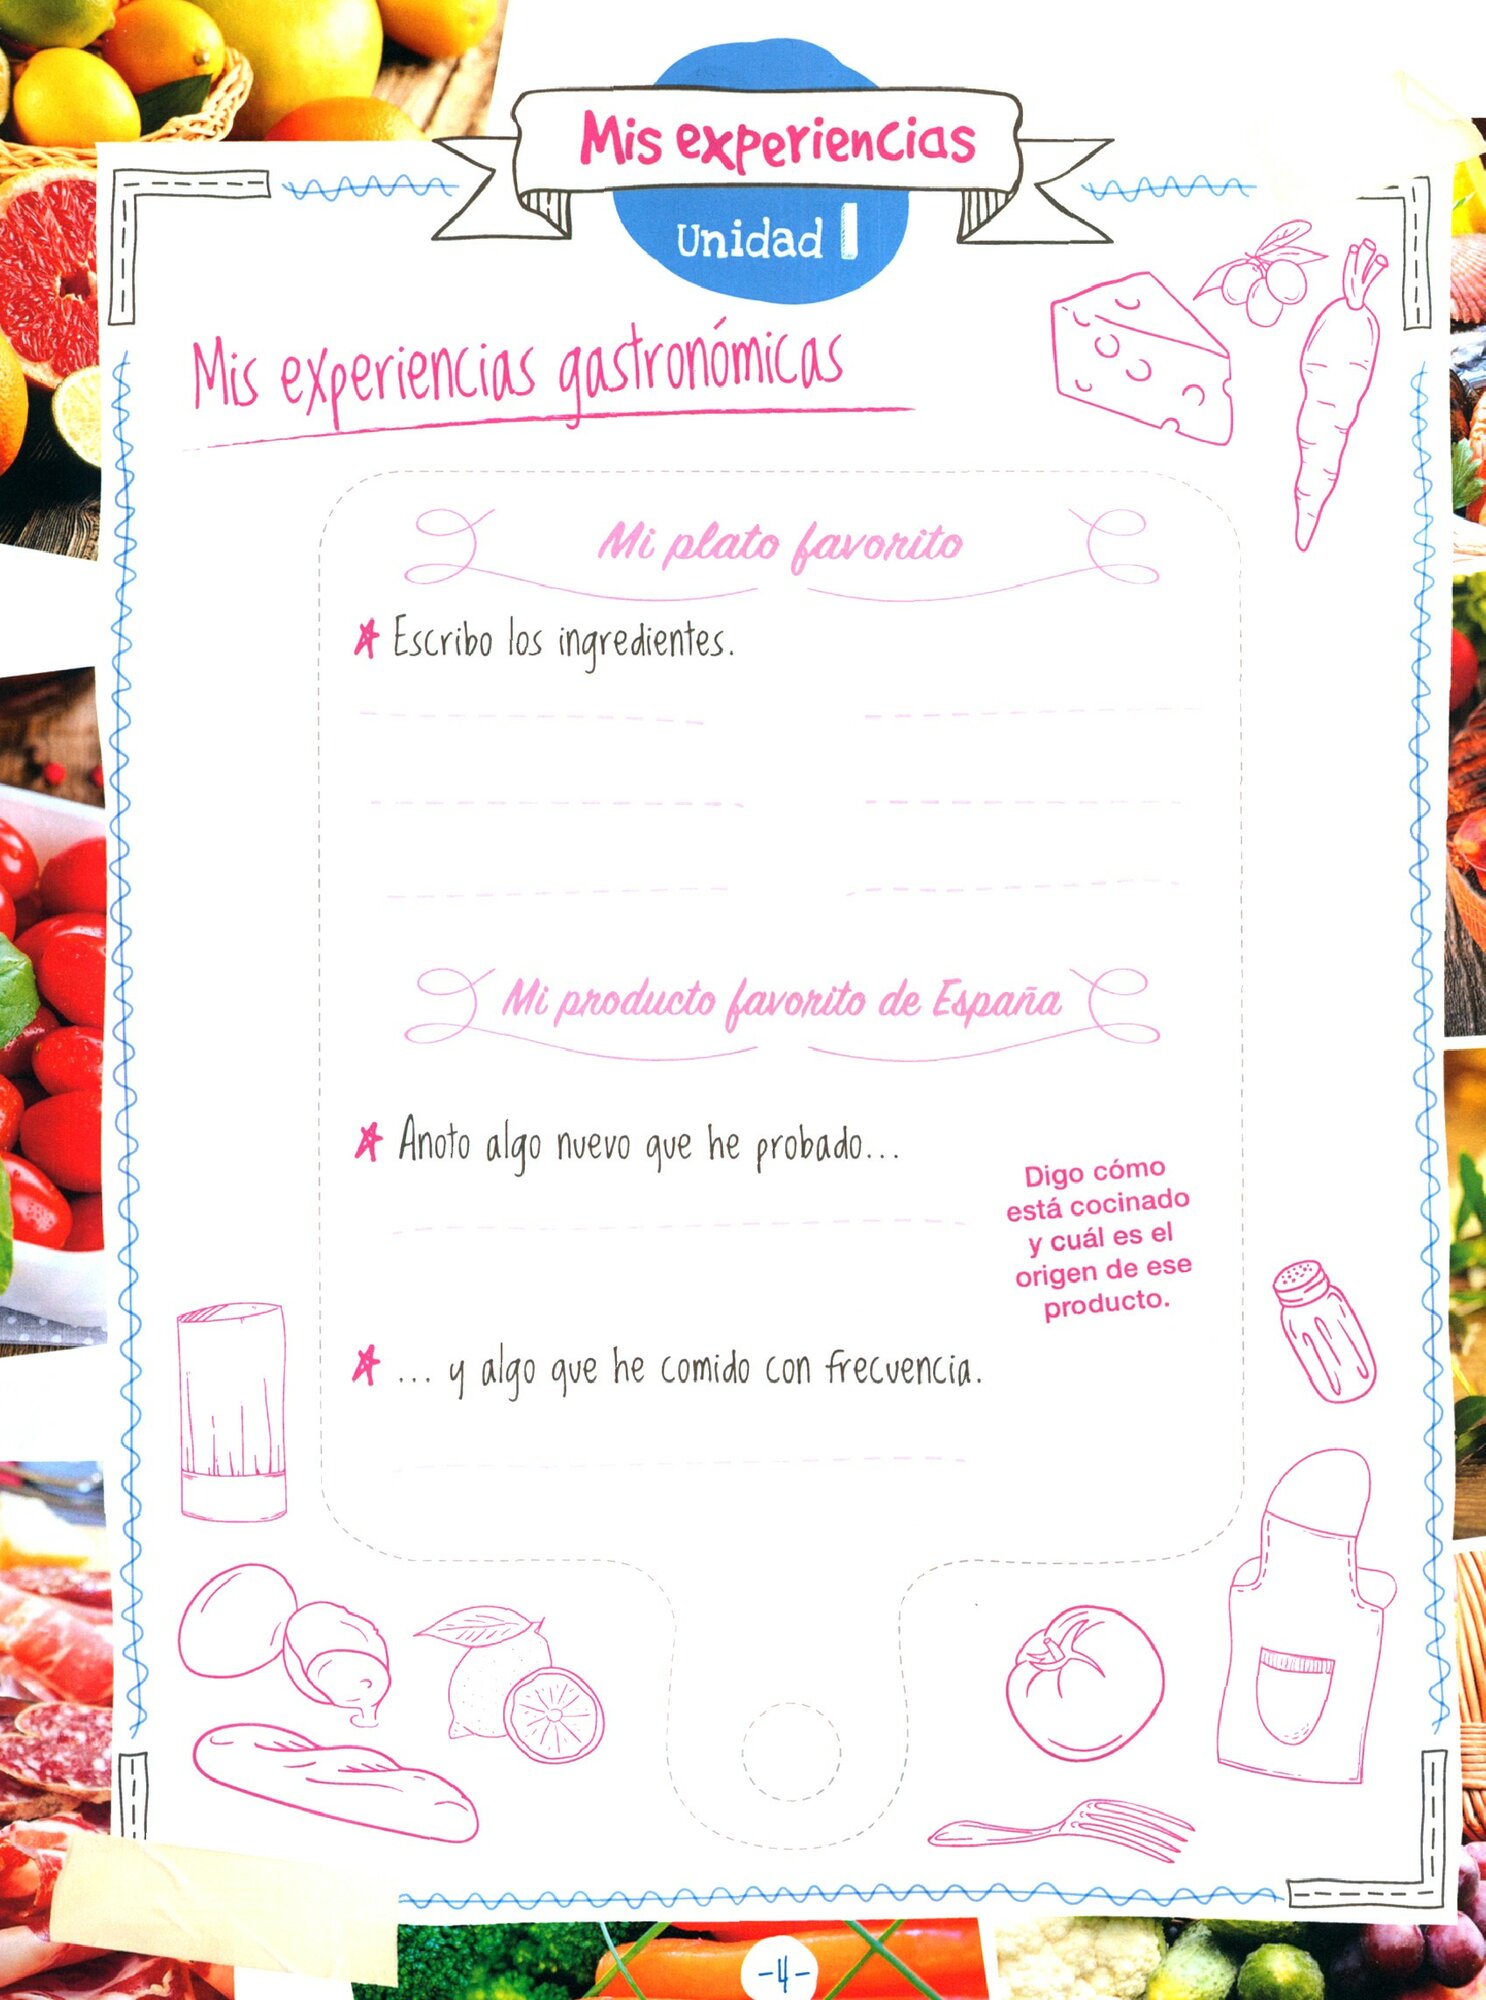 Mis experiencias
Unidad 1
Mis experiencias gastronómicas
Mi plato favorito
Escribo los ingredientes.
Mi producto favorito de España
Anoto algo nuevo que he probado...
Digo cómo
está cocinado
y cuál es el
origen de ese
producto.
... y algo que he comido con frecuencia.
-4-